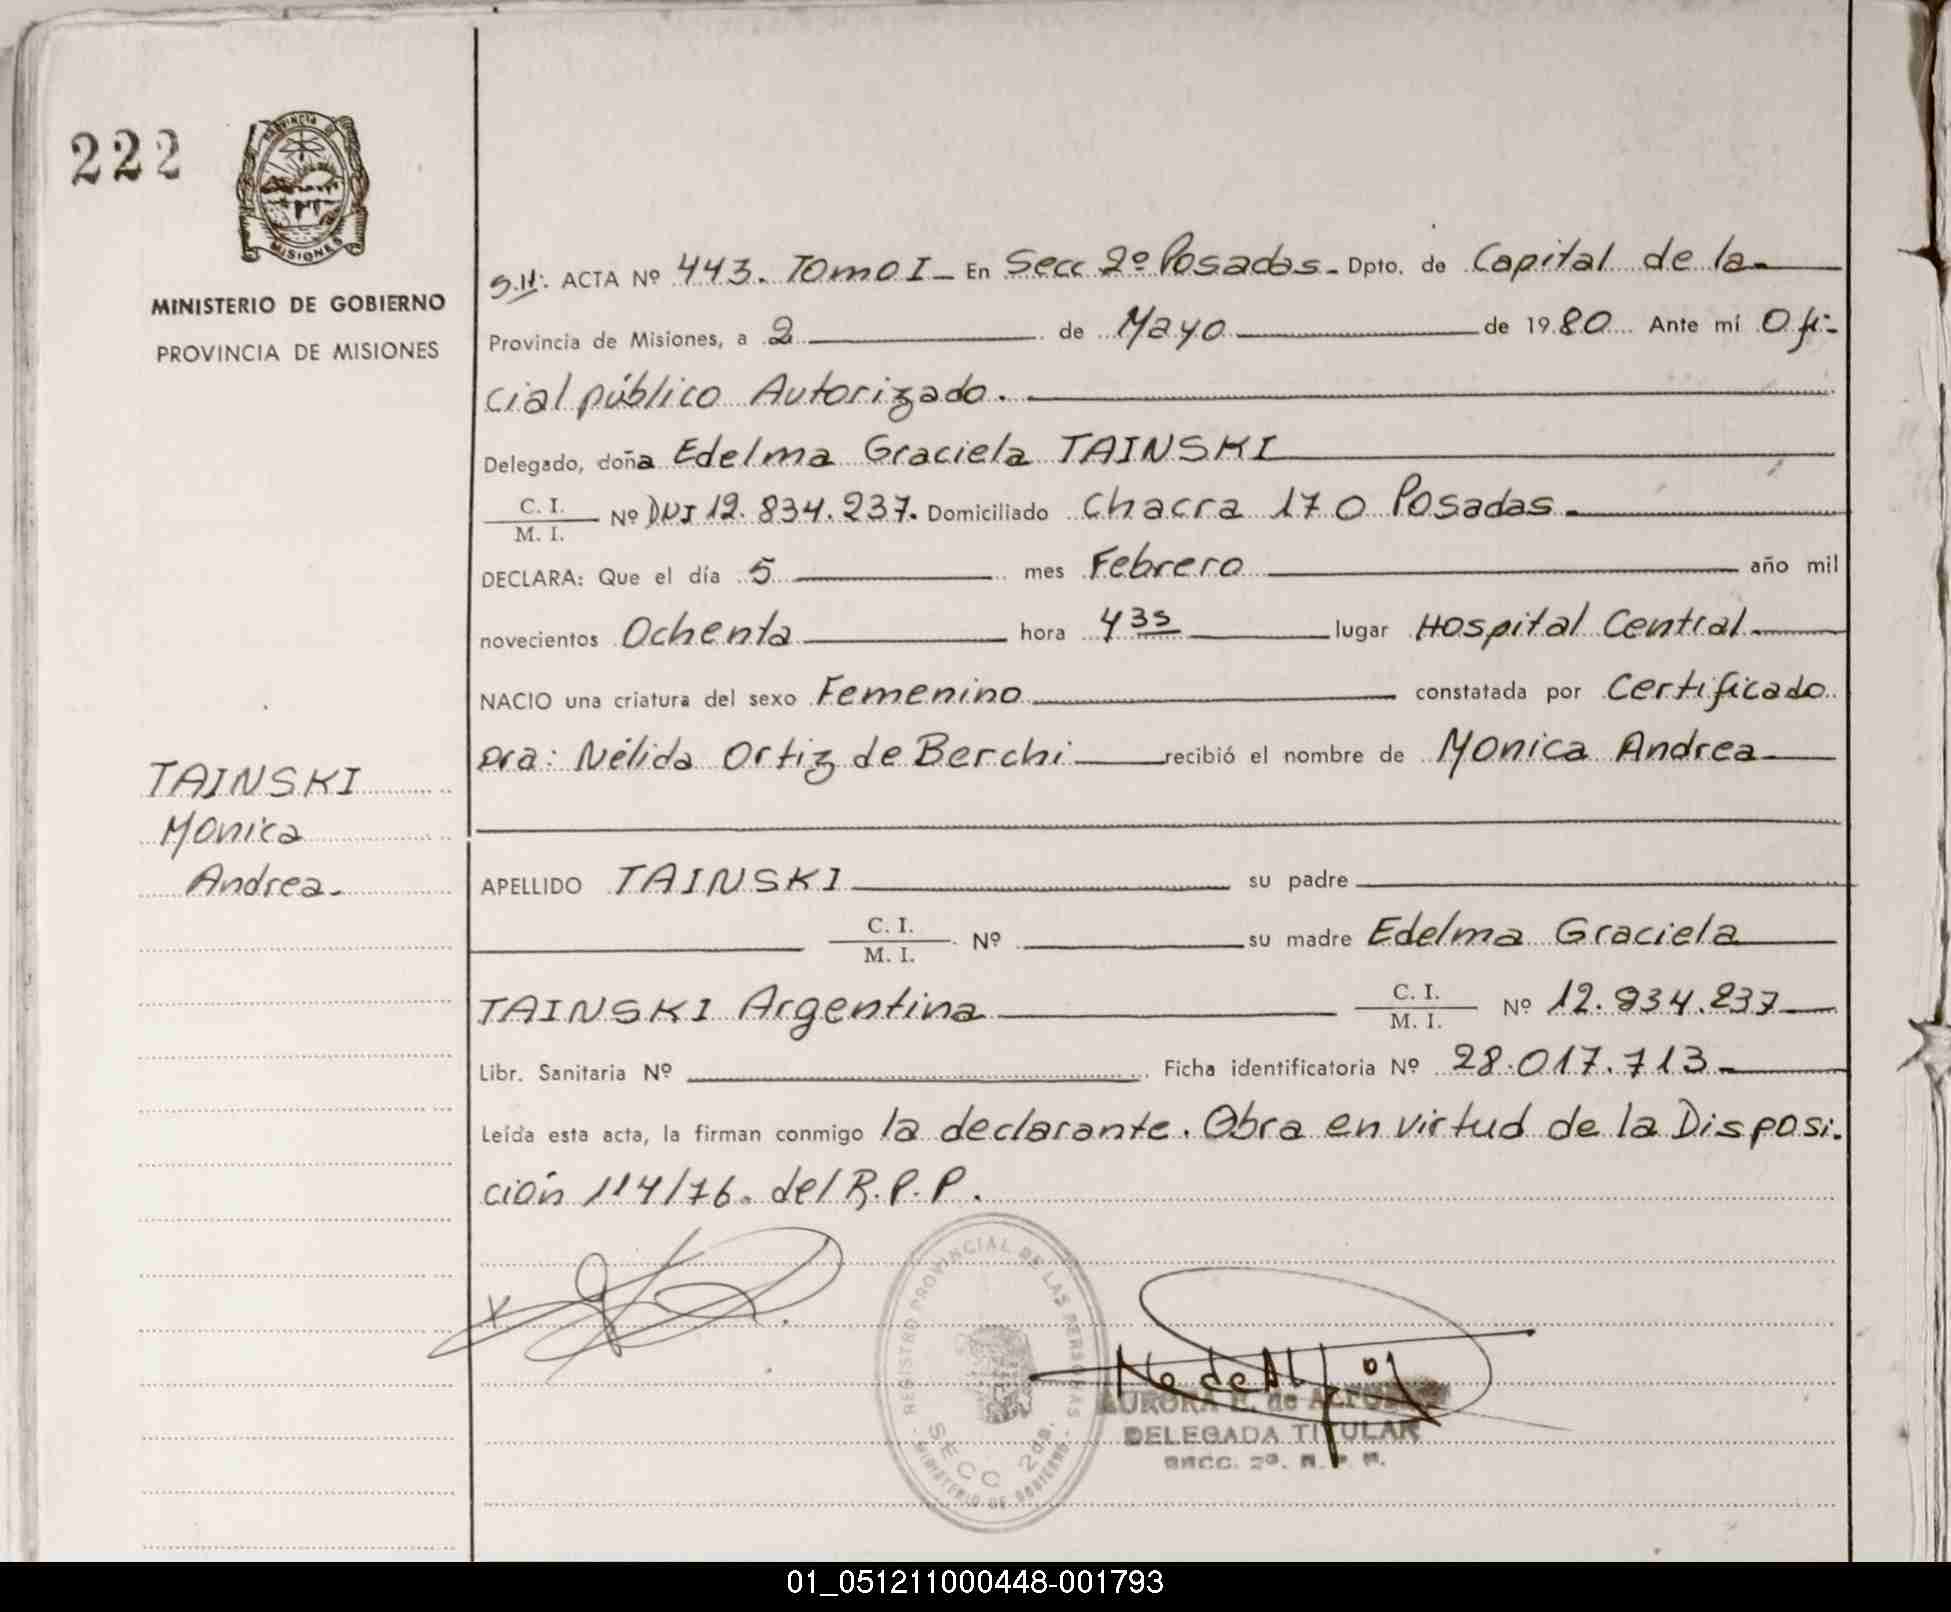 222
PROVINCIA DE
MISIONES
MINISTERIO DE GOBIERNO
PROVINCIA DE MISIONES
S.H: ACTA Nº 443. TOMO I - En Secc 2º Posadas - Dpto. de Capital de la
Provincia de Misiones, a 2 de Mayo de 1980 Ante mí Ofi-
cial público Autorizado.
Delegado, doña Edelma Graciela TAINSKI
C. I.
M. I. Nº DNI 12.834.237. Domiciliado Chacra 170 Posadas.
DECLARA: Que el día 5 mes Febrero año mil
novecientos Ochenta hora 4 35 lugar Hospital Central
NACIO una criatura del sexo Femenino constatada por Certificado
Dra: Nélida Ortiz de Berchi recibió el nombre de Monica Andrea
TAINSKI
Monica
Andrea.
APELLIDO TAINSKI su padre
C. I.
M. I. Nº su madre Edelma Graciela
TAINSKI Argentina C. I.
M. I. Nº 12.834.237
Libr. Sanitaria Nº Ficha identificatoria Nº 28.017.713
Leída esta acta, la firman conmigo la declarante. Obra en virtud de la Disposi-
ción 114/76. del R.P.P.
REGISTRO PROVINCIAL DE LAS PERSONAS
SECC 2da.
MINISTERIO DE GOBIERNO
AURORA de
DELEGADA TITULAR
SECC. 2ª. R. P. P.
01_051211000448-001793